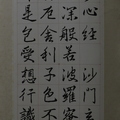 心經 沙門玄
深般若波羅蜜
厄舍利子色不
是色受想行識